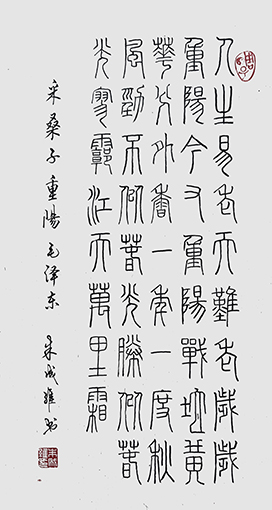 人生易老天難老歲歲
重陽今又重陽戰地黃
華分外香一年一度秋
風勁不似春光勝似春
光寥霩江天萬里霜
采桑子重陽 毛泽东